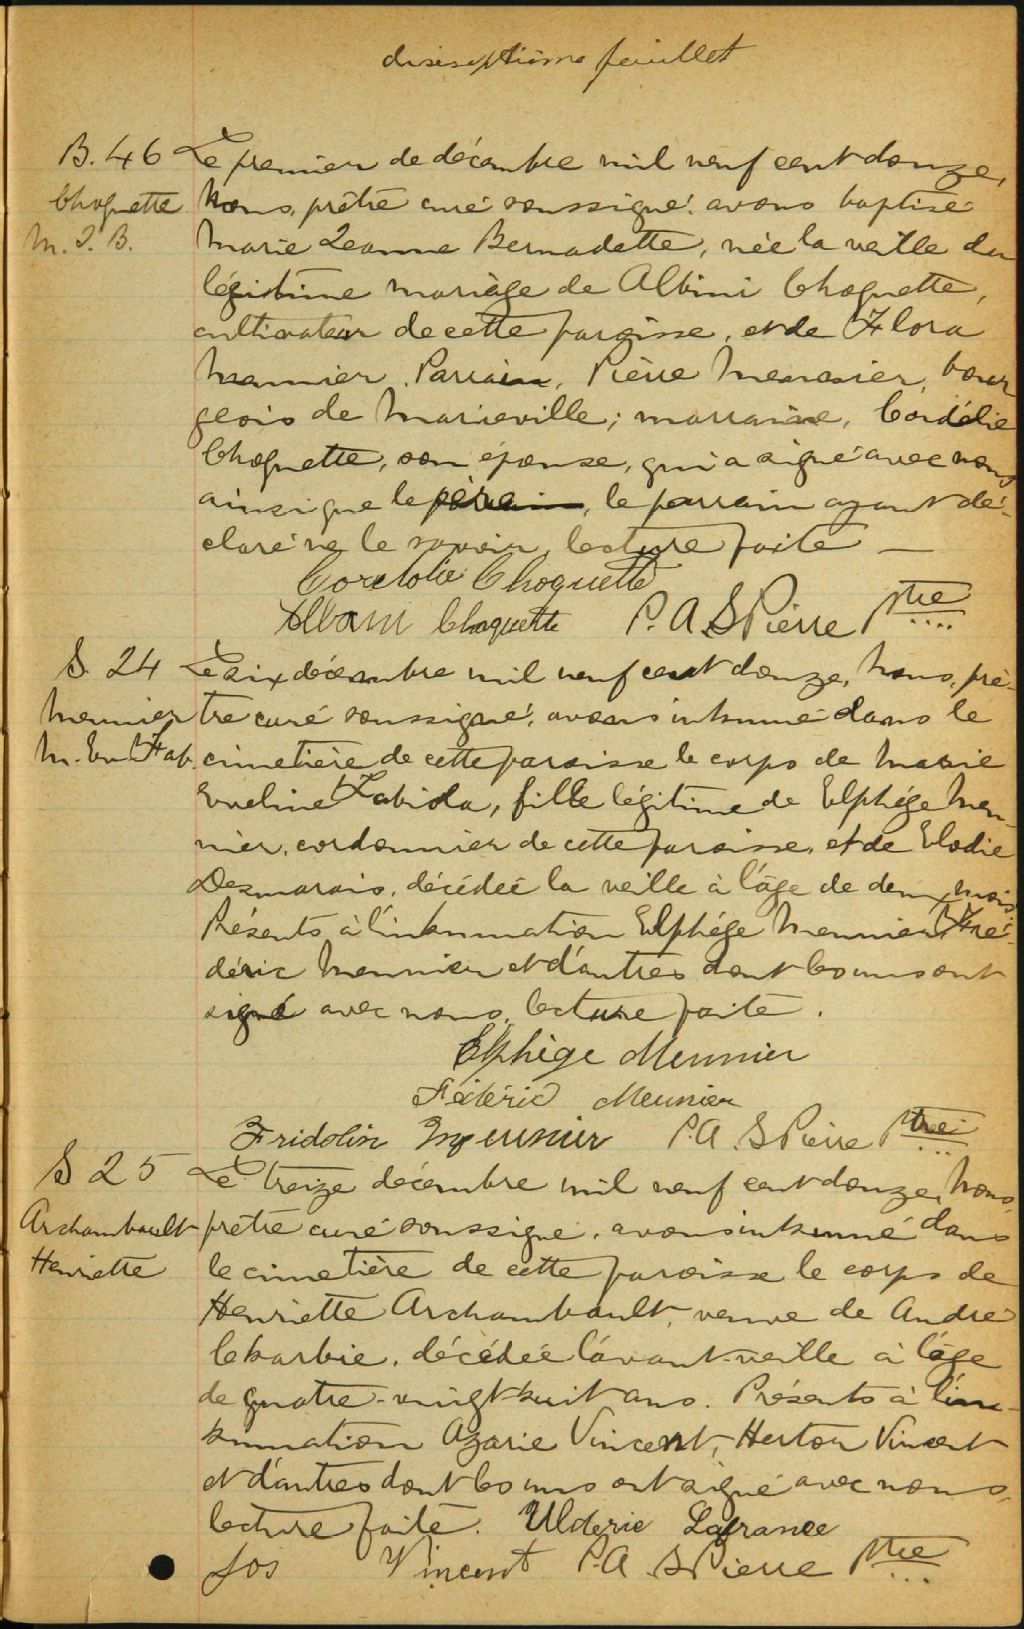 dixseptième feuillet
B. 46 Le premier de décembre mil neuf cent douze,
Choquette Nous, prêtre curé soussigné avons baptisé
M. J. B. Marie Jeanne Bernadette, née la veille du
légitime mariage de Albini Choquette,
cultivateur de cette paroisse, et de Flora
Meunier. Parrain, Pierre Meunier, bour
geois de Marieville; marraine, Cordélie
Choquette, son épouse, qui a signé avec nous
ainsi que le père, le parrain ayant dé-
claré ne le savoir, lecture faite —
Cordelie Choquette
Albani Choquette P. A. St Pierre Ptre
S. 24 Le six décembre mil neuf cent douze, Nous, prê-
Meunier tre curé soussigné, avons inhumé dans le
M. Ev. Fab. cimetière de cette paroisse le corps de Marie
Eveline Fabiola, fille légitime de Elphége Meu-
nier, cordonnier de cette paroisse, et de Elodie
Desmarais, décédée la veille à l'âge de deux mois.
Présents à l'inhumation Elphége Meunier, Fré-
déric Meunier et d'autres dont les uns ont
signé avec nous, lecture faite.
Elphége Meunier
Fédéric Meunier
Fridolin Meunier P. A. St Pierre Ptre
S 25 Le treize décembre mil neuf cent douze, Nous,
Archambault prêtre curé soussigné, avons inhumé dans
Henriette le cimetière de cette paroisse le corps de
Henriette Archambault, veuve de André
Lebarbie, décédée l'avant-veille à l'âge
de quatre-vingt huit ans. Présents à l'in-
humation Azarie Vincent, Hector Vincent
et d'autres dont les uns ont signé avec nous,
lecture faite. Ulderic Lafrance
Jos Vincent P. A. St Pierre Ptre